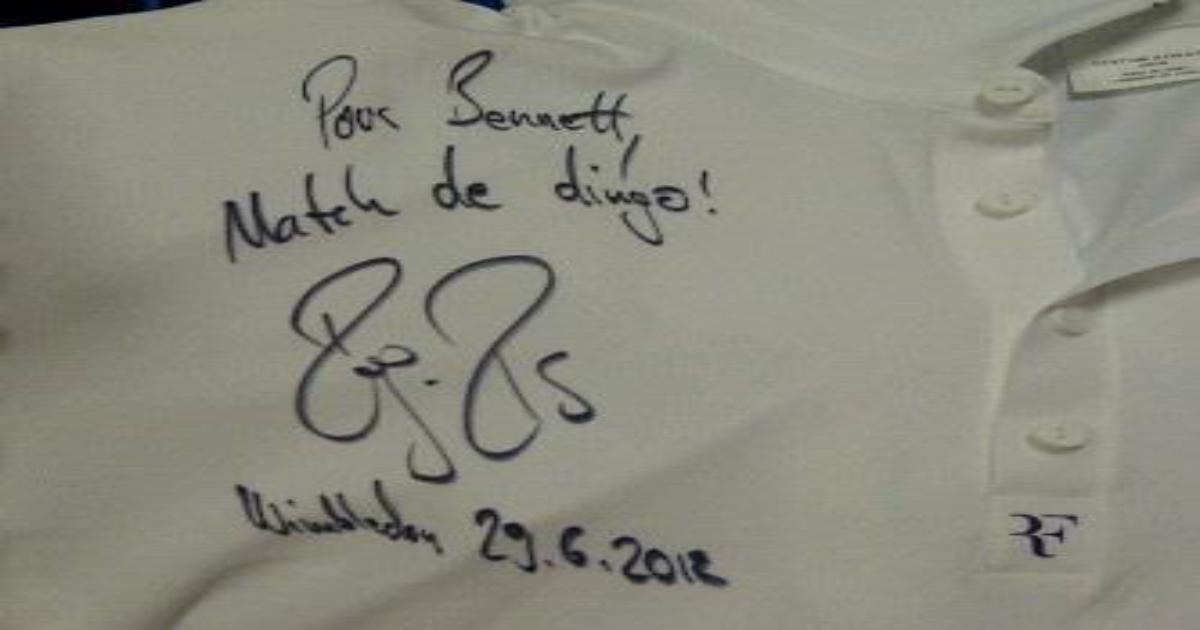 Pour Bennett,
Match de dingo!
Wimbledon 29.6.2012
RF